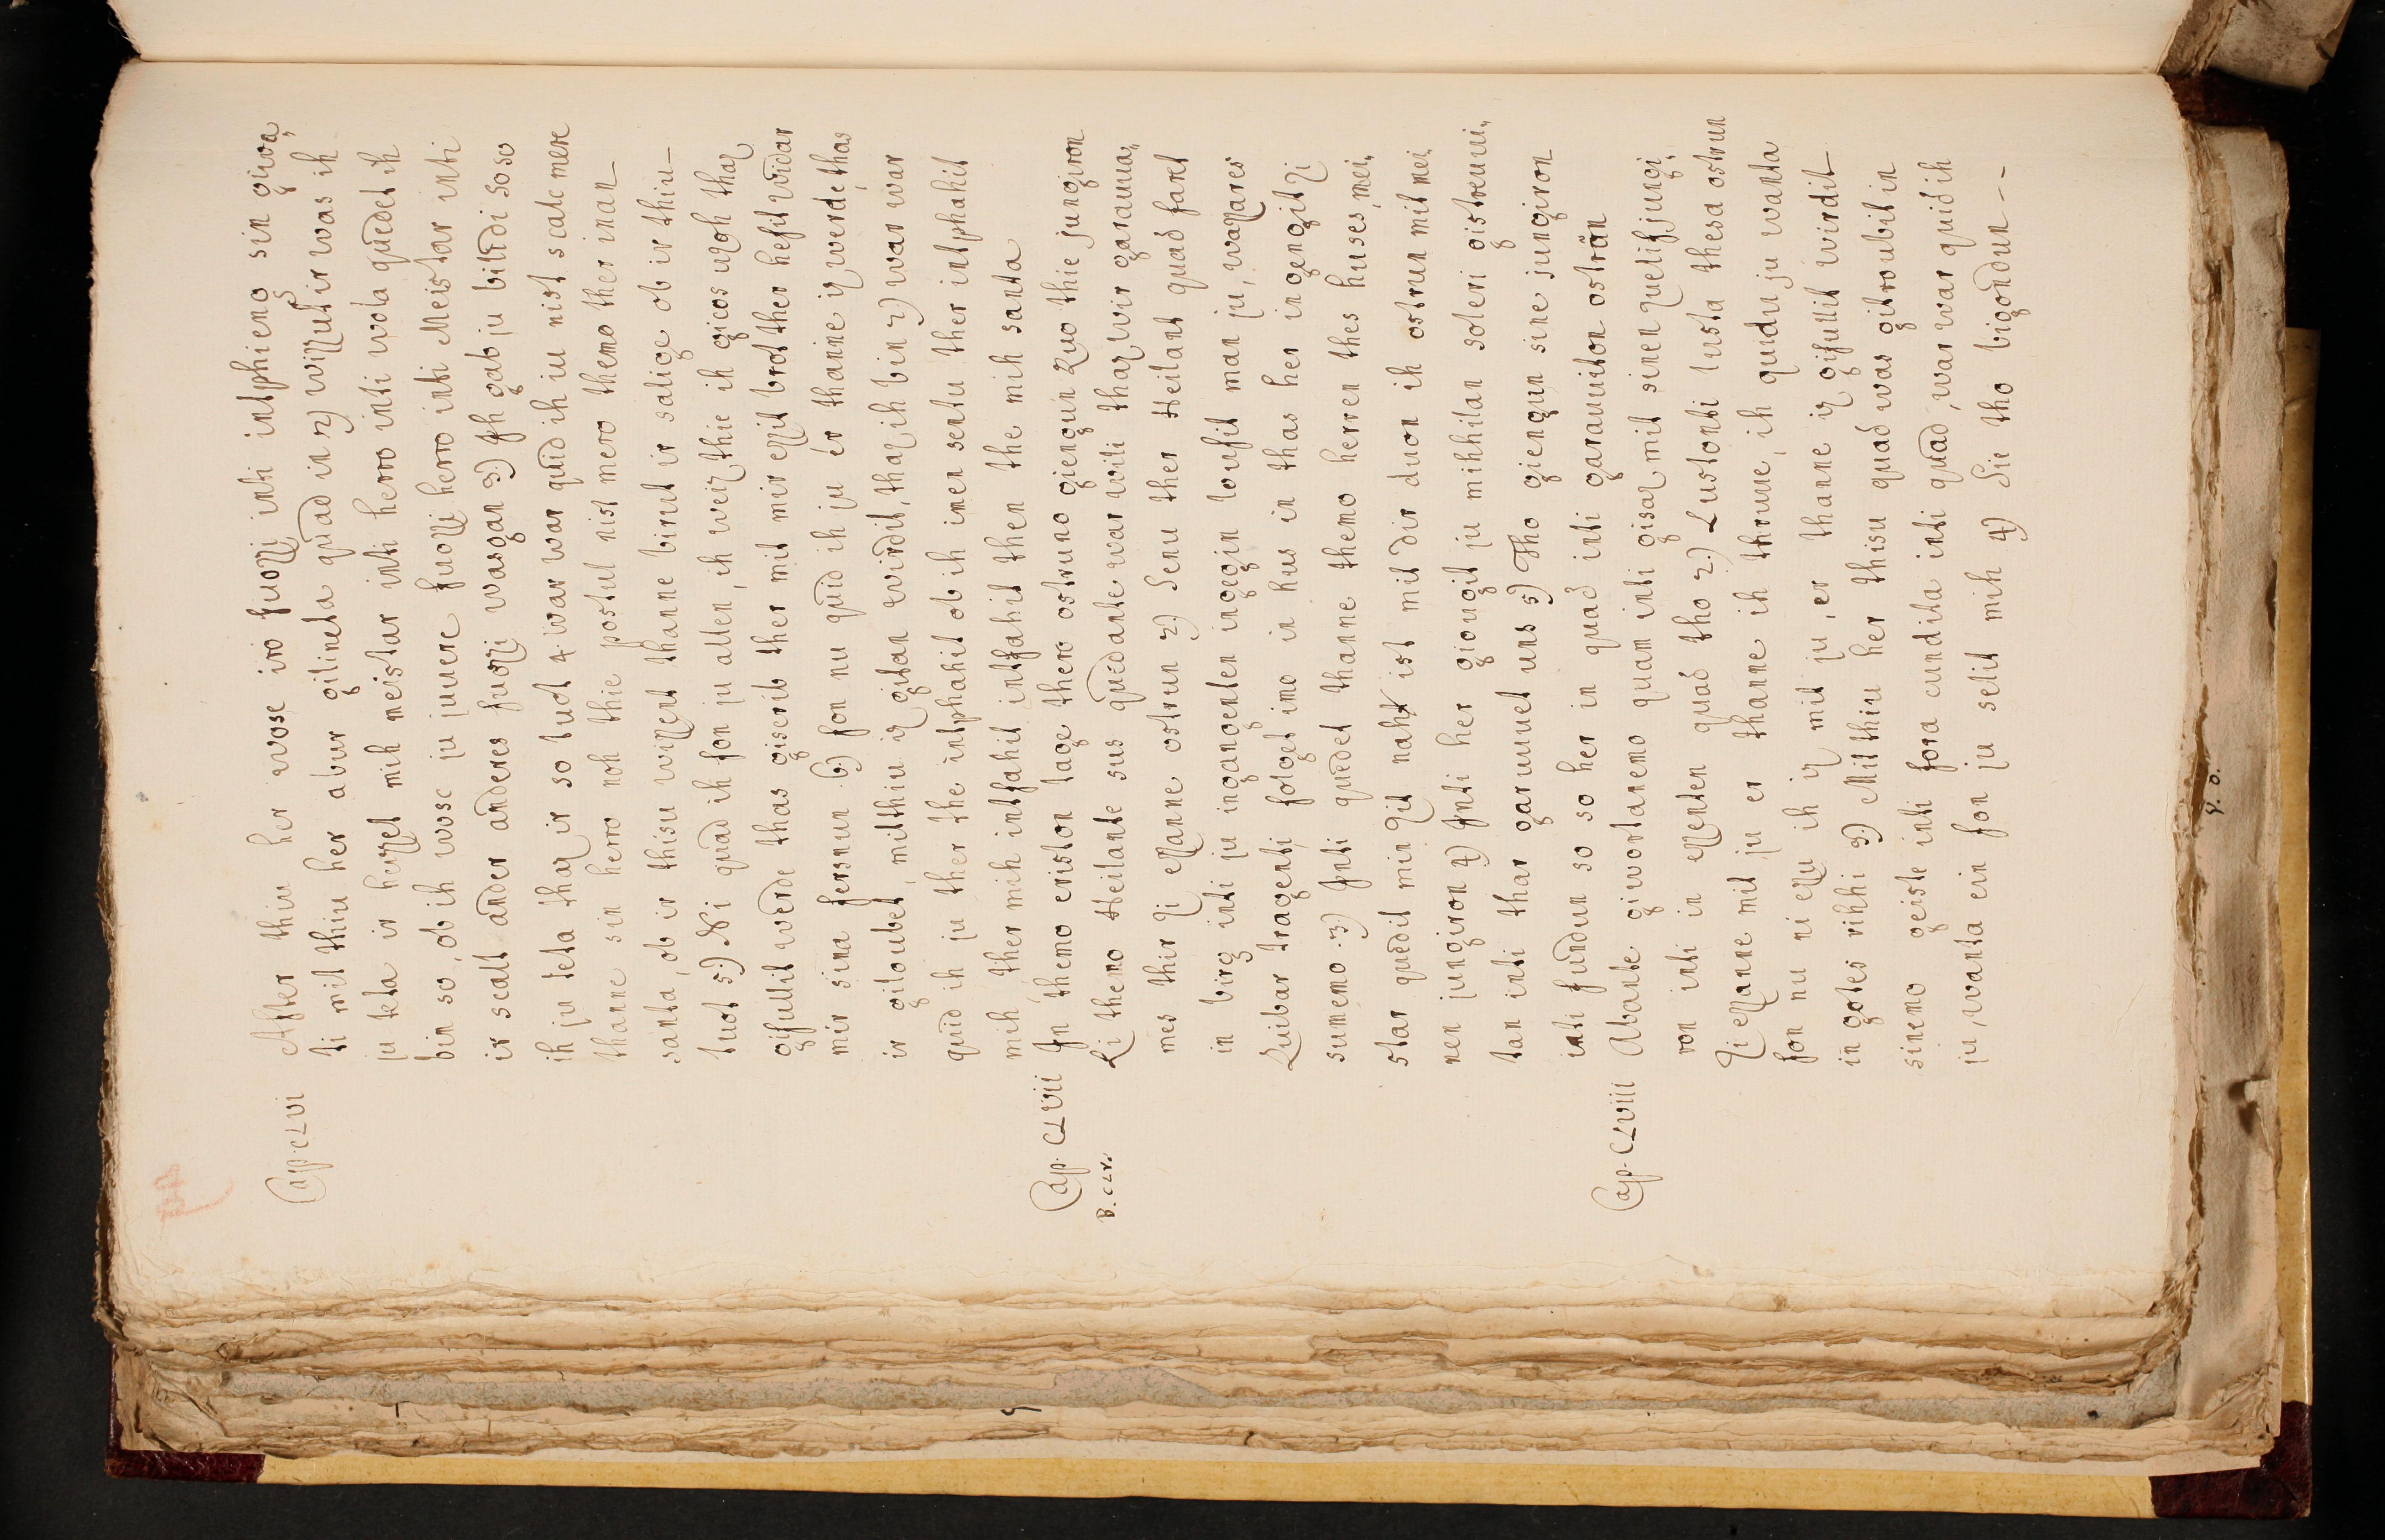 Cap. CLVI After thiu her wose iro fuozzi inti intphieng sin giwa,
ti mit thiu her abur gilineta quad in 2) wizzut ir was ih
ju teta ir heizzet mih meistar inti herro inti wola quedet ih
bin so, ob ih wosc ju juuere fuozzi herro inti Meistar inti
ir scalt ander anderes fuozzi wasgan 3.) Jh gab ju bilidi so so
ih ju teta thaz ir so tuot 4. war war quid ih iu nist scalc mere
thanne sin herro noh thie postul nist mero themo ther inan
santa, ob ir thisu wizzent thanne birut ir salige ob ir thiu
tuot 5.) Ni quad ih fon ju allen, ih weiz thie ih gicos uzoh thaz
gifullit werde thas giscrib ther mit mir ezzit brot ther hefit widar
mir sina fersnun 6.) fon nu quid ih ju ér thanne iz werde, thas
ir giloubet, mitthiu iz gitan wirdit, thaz ih bin 7.) war war
quid ih ju ther the intphahit ob ih inen sentu ther intphahit
mih, ther mih intfahit intfahit then the mih santa
Cap. CLVII Jn themo eriston tage thero ostruno giengun zuo thie jungiron
B. CLV. Zi themo Heilante sus quedante war wili thaz wir garauua,
mes thir zi ezzanne ostrun 2.) Senu ther Heilant quad faret
in birg inti ju ingangenten ingegin loufit man ju, wazares
Zuibar tragenti folget imo in hus in thas her ingengit zi
sumemo .3.) Jnti quedet thanne themo herren thes huses, mei,
star quedit min zit naht ist mit dir duon ih ostrun mit mei,
nen jungiron 4) Jnti her giougit ju mihhilan soleri gistreuui,
tan inti thar garuuuet uns 5) Tho giengun sine jungiron
inti fundun so so her in quad inti garauuiton ostrün
Cap. CLVIII Abande giwortanemo quam inti gisaz mit sinen zuelif jungi,
ron inti in ezzenten quad tho 2.) Lustonti lusta thesa ostrun
zi ezzanne mit ju er thanne ih thruuue, ih quidu ju wanta
fon nu ni ezzu ih iz mit ju, er thanne iz gifullit wirdit
in gotes rihhi 3) Mit thiu her thisu quad was gitroubit in
sinemo geiste inti fora cundita inti quad, war war quid ih
ju, wanta ein fon ju selit mih 4) Sie tho bigondun --